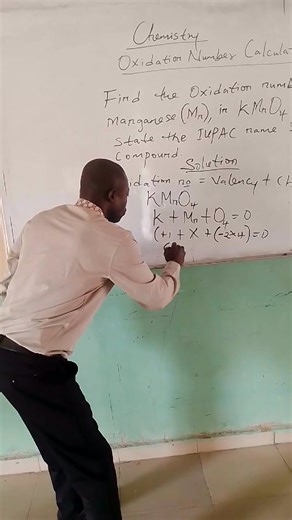 Chemistry
Oxidation Number Calculat
Find the Oxidation num
Manganese (Mn), in KMnO4
state the IUPAC name
compound
Solution
idation no = Valency + C
KMnO4
K + Mn + O4 = 0
(+1 + X + (-2x4) = 0